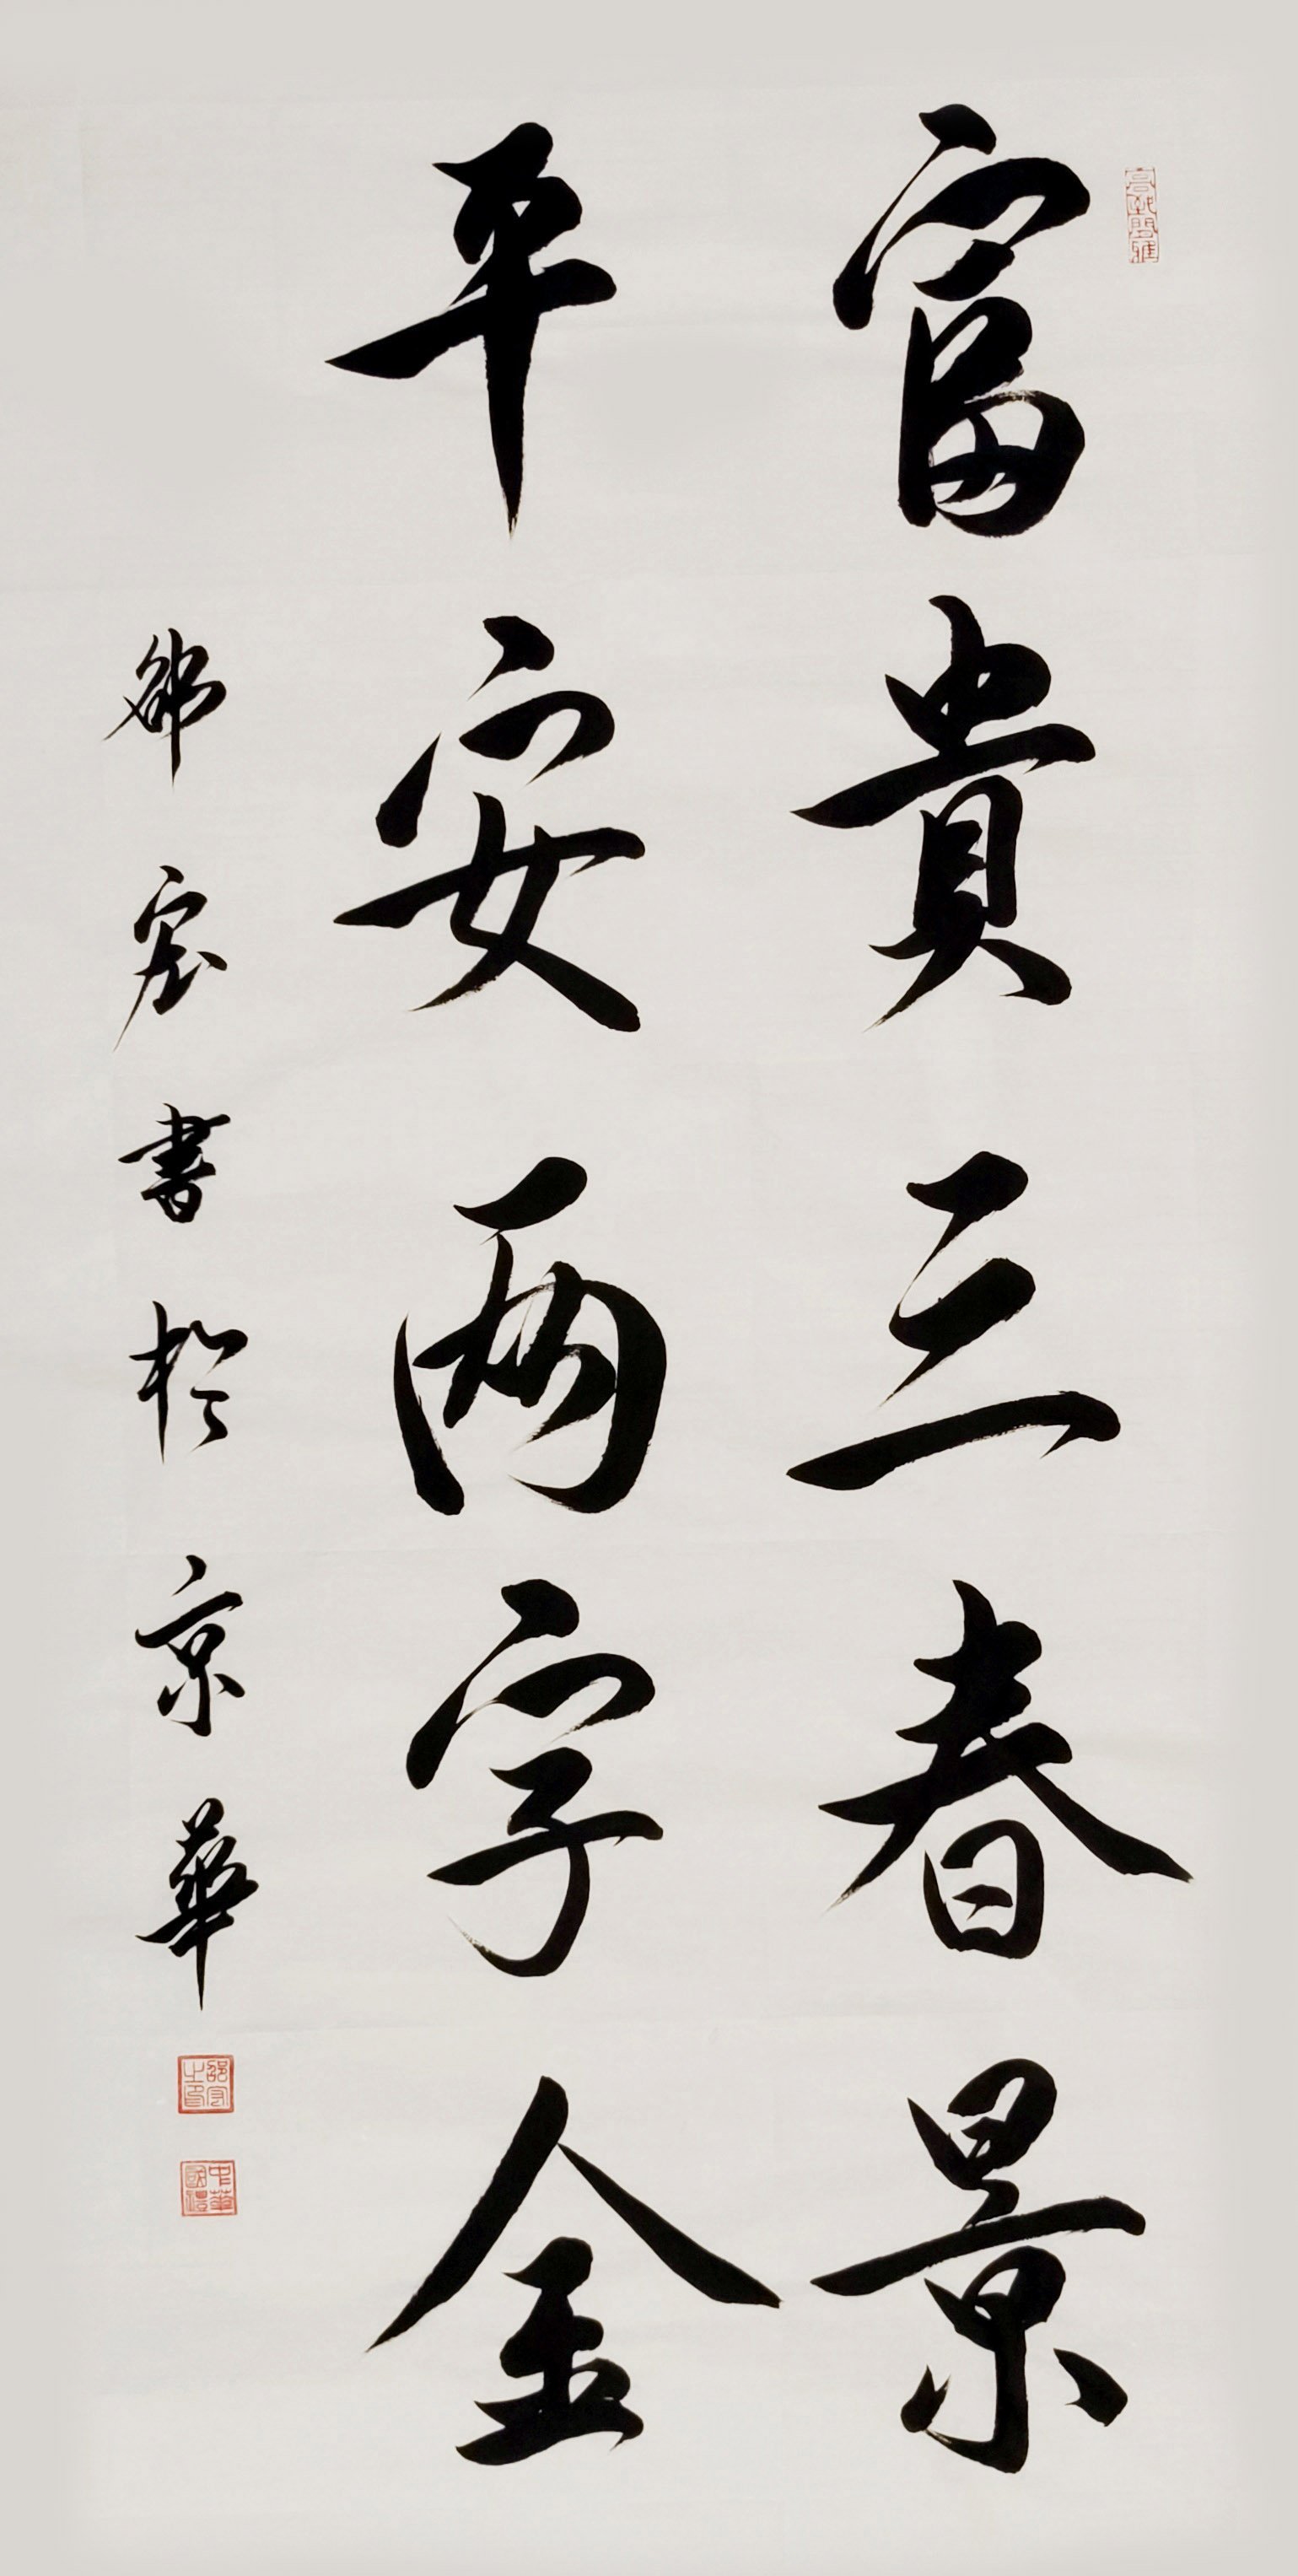 富貴三春景
平安兩字金
邵宏書於京華